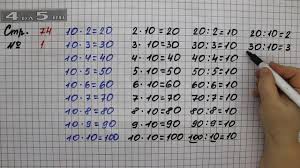 Стр. 74
№ 1
10·2=20 2·10=20 20:2=10 20:10=2
10·3=30 3·10=30 30:3=10 30:10=3
10·4=40 4·10=40 40:4=10
10·5=50 5·10=50 50:5=10
10·6=60 6·10=60 60:6=10
10·7=70 7·10=70 70:7=10
10·8=80 8·10=80 80:8=10
10·9=90 9·10=90 90:9=10
10·10=100 10·10=100 100:10=10